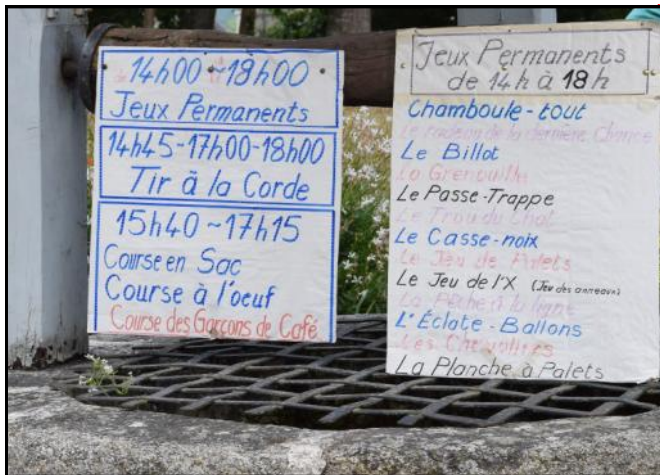 14h00~18h00
Jeux Permanents
14h45-17h00-18h00
Tir à la Corde
15h40~17h15
Course en Sac
Course à l'oeuf
Course des Garçons de Café
Jeux Permanents
de 14h à 18h
Chamboule-tout
Le radeau de la dernière Chance
Le Billot
La Grenouille
Le Passe-Trappe
Le Trou du Chat
Le Casse-noix
Le Jeu de Palets
Le Jeu de l'X (Jeu des anneaux)
La Pêche à la ligne
L'Éclate-Ballons
Les
La Planche à Palets